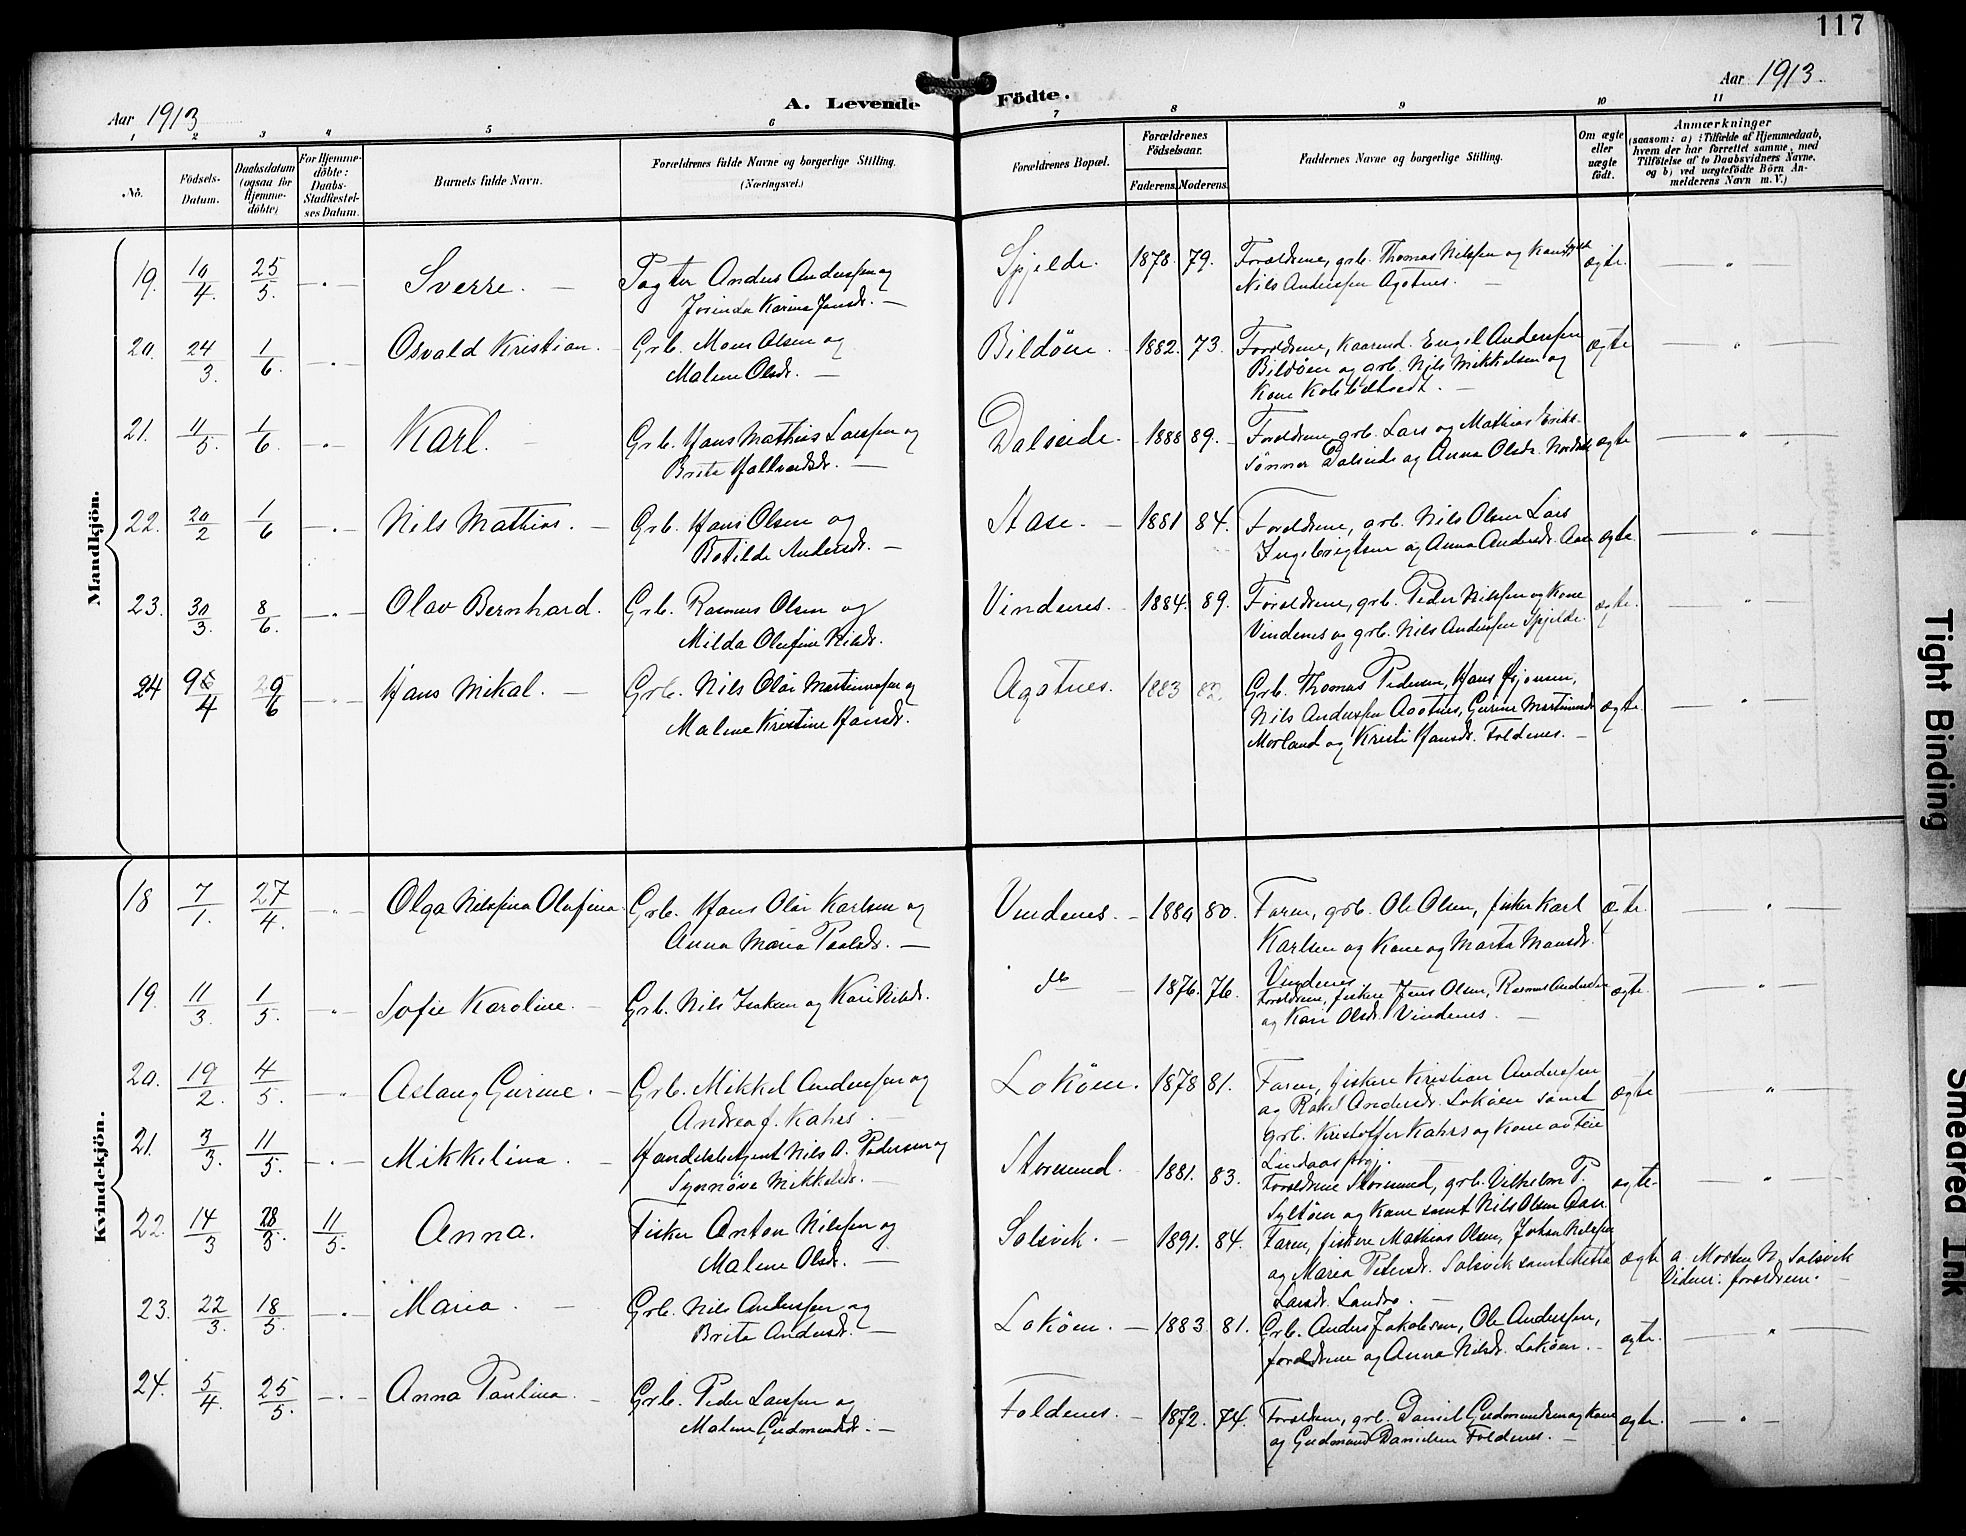 117
Aar 1913
A. Levende Födte.
Aar 1913
1 2 3 4 5 6 7 8 9 10 11
No.
Födsels-Datum.
Daabsdatum (ogsaa for Hjemme-döbte)
For Hjemme-döbte: Daabs-Stadfæstel-ses Datum.
Barnets fulde Navn.
Forældrenes fulde Navne og borgerlige Stilling.
(Næringsvei.)
Forældrenes Bopæl.
Forældrenes Födselsaar.
Faderens. Moderens.
Faddernes Navne og borgerlige Stilling.
Om ægte eller uægte födt.
Anmærkninger
(saasom: a) i Tilfælde af Hjemmedaab,
hvem der har forrettet samme, med
Tilföielse af to Daabsvidners Navne,
og b) ved uægtefödte Börn An-
melderens Navn m. V.)
Mandkjön.
19. 10/4 25/5. — " — Sverre. — Pagter Anders Anderssen og
Jorinda Karina Jansdr. —
Spjelde. 1878. 79. Forældrene, grb. Thomas Nilssen og Kone Spjelde
Nils Anderssen Agotnes. — ægte. — " —
20. 24/3. 1/6. — " — Osvald Kristian. Grb. Mons Olsen og
Malene Olsdr. —
Bildöen. 1882. 73. Forældrene, kaarmd. Engel Anderssen
Bildöen og grb. Nils Mikkelsen og
Kone Kolebeltveit. — ægte — " —
21. 11/5. 1/6. — " — Karl. — Grb. Hans Mathias Larssen og
Brita Hallvardsdr. —
Dalseide. 1888 89. Forældrene, grb. Lars og Mathias Eriks-
sönner Dalseide og Anna Olsdr. ægte — " —
22. 20/2 1/6 — " — Nils Mathias. — Grb. Hans Olsen og
Botilde Andersdr. —
Aase. — 1881 84. Forældrene, grb. Nils Olsen Lars
Ingebrigtsen og Anna Andersdr. Aase ægte — " —
23. 30/3. 8/6. — " — Olav Bernhard. Grb. Rasmus Olsen og
Milda Olufine Nilsdr.
Vindenes. 1884. 89. Forældrene, grb. Peder Nilssen og Kone
Vindenes og grb. Nils Anderssen Spjelde. ægte. — " —
24 /4 /6 — " — Hans Mikal. — Grb. Nils Olai Martinussen og
Malene Kristine Hansdr.
Agotnes. 1883 82. Grb. Thomas Pedersen, Hans
Nils Anderssen Agotnes, Gurine Martinusdr
Morland og Kristi Hansdr. Foldenes. — ægte. — " —
Kvindekjön.
18 7/1. 27/4. — " — Olga Nilssina Olufina. Grb. Hans Olai Karlsen og
Anna Maria Paalsdr. —
Vindenes. — 1880 80. Faren, grb. Ole Olsen, fisker Karl
Karlsen og Kone og Marta Monsdr.
Vindenes ægte. — " —
19. 11/3. 1/5. — " — Sofie Karoline. — Grb. Nils Isaksen og Kari Nilsdr.
do — 1876. 76. Forældrene, fiskere Jens Olsen, Rasmus Anderssen
og Kari Olsdr. Vindenes. — ægte. — " —
20. 19/2. 4/5. — " — Aslaug Gurine. — Grb. Mikkel Anderssen og
Andrea f. Kahrs. —
Loköen. 1878 81. Faren, fiskere Kristian Anderssen
og Rakel Andersdr. Loköen samt
grb. Kristoffer Kahrs og Kone av Feie
Lindaas prgj. — ægte — " —
21. 3/3. 11/5. — " — Mikkeline. — Handelsbetjent Nils A. Pedersen og
Synnöve Mikkelsdr. —
Storesund. 1881. 83. Forældrene Storesund, grb. Vilhelm P.
Syltöen og Kone samt Nils Olsen Aase ægte — " —
22. 14/3 28/3. 11/5. Anna. Fisker Anton Nilssen og
Malene Olsdr. —
Solsvik. — 1891. 84. Faren, fiskere Mathias Olsen, Johan Nilssen
og Maria Petersdr. Solsvik samt Metta
Larsdr. Landro. — ægte a. Morten N. Solsvik
Vidner: forældrene. —
23. 22/3. 18/5. — " — Maria. — Grb. Nils Anderssen og
Brita Andersdr. —
Loköen. — 1883 81. Grb. Anders Jakobsen, Ole Anderssen,
forældrene og Anna Nilsdr. Loköen. — ægte. — " —
24. 5/4. 25/5. — " — Anna Paulina. — Grb. Peder Larssen og
Malene Gudmundsdr. —
Foldenes. — 1872. 74. Forældrene, grb. Daniel Gudmundsen og Kone
og Gudmund Danielsen Foldenes. — ægte. — " —
Tight Binding
Smeared Ink